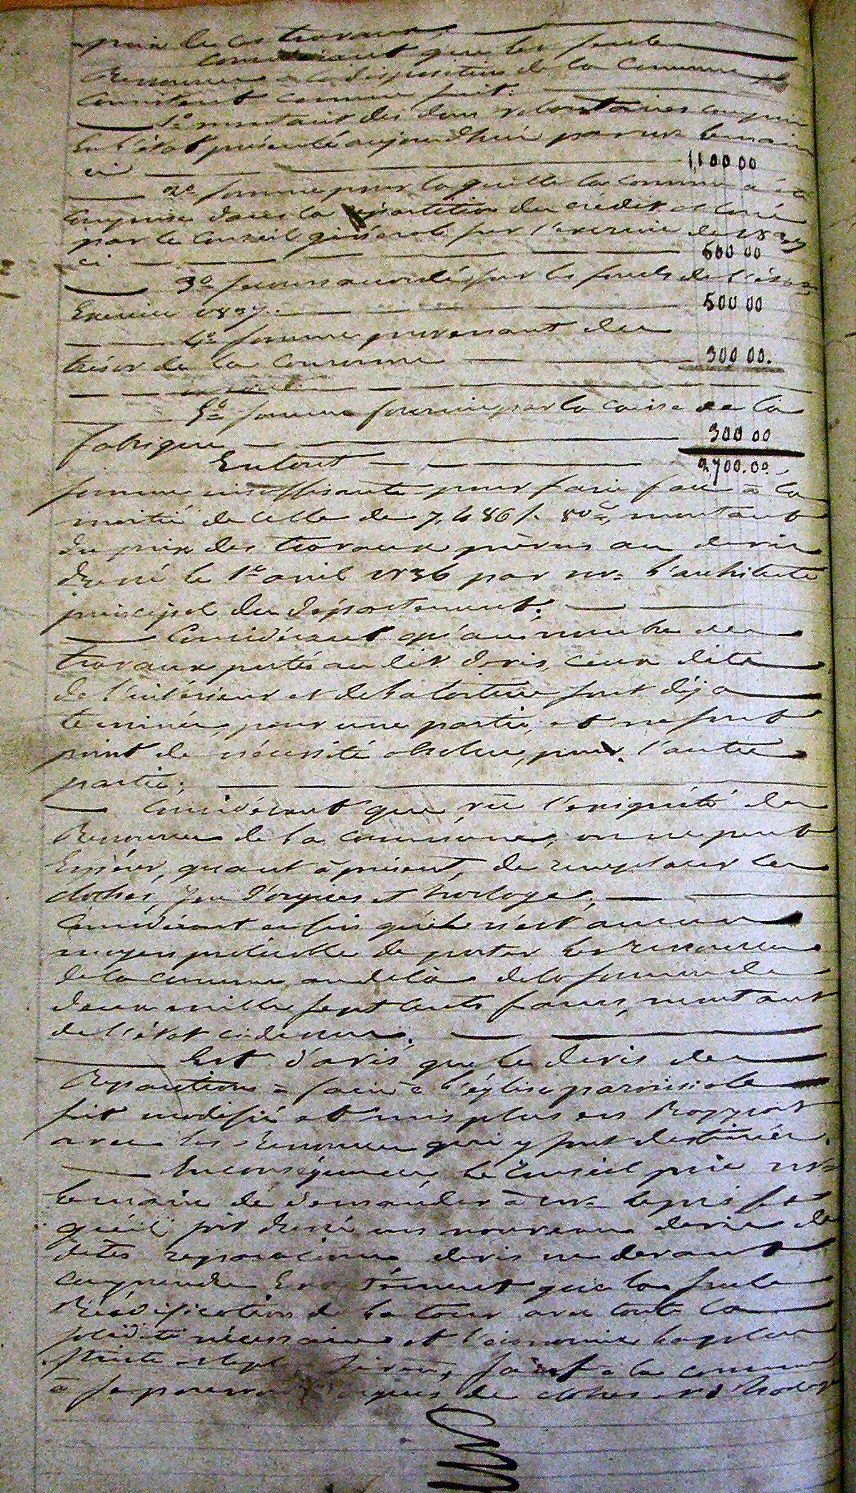 prix de ces travaux,
Considérant que les seules
Ressources à la disposition de la Commune
Consistent comme suit:
1º montant des dons volontaires compris
en l'état présenté aujourd'hui par mr le maire
ci 1100 00
2º somme pour laquelle la commune a été
comprise dans la répartition du crédit alloué
par le Conseil général, sur l'exercice de 1837
ci 600 00
3º secours accordé sur les fonds de l'état
Exercice 1837. 500 00
4º somme provenant du
trésor de la Couronne 300 00.
5º somme fournie par la caisse de la
fabrique 300 00
En tout 2700.00
somme insuffisante pour faire face à la
moitié de celle de 7,486 f. 80c, montant
du prix des travaux prévus au devis
dressé le 1er avril 1836 par mr l'architecte
principal du département.
Considérant qu'au nombre des
travaux portés au dit devis, ceux dits
de l'intérieur et de la toiture sont déjà
terminés, pour une partie, et ne sont
point de nécessité absolue, pour l'autre
partie;
Considérant que vu l'exiguité des
Ressources de la commune, on ne peut
Espérer, quant à présent, de remplacer les
cloches, jeu d'orgues et horloge,
Considérant enfin qu'il n'est aucun
moyen praticable de porter les ressources
de la commune au delà de la somme de
deux mille sept cents francs, montant
de l'état ci dessus.
Est d'avis que le devis des
Réparations à faire à l'église paroissiale
soit modifié et mis plus en Rapport
avec les Ressources qui y sont destinées.
En conséquence, le Conseil prie mr
le maire de demander à mr le préfet
qu'il soit dressé un nouveau devis des
dites réparations, devis ne devant
comprendre que la seule
Réédification de la tour avec toute la
solidité nécessaire et l'économie la plus
stricte sauf à la commune
à se pourvoir d'orgues de cloches et d'horloge